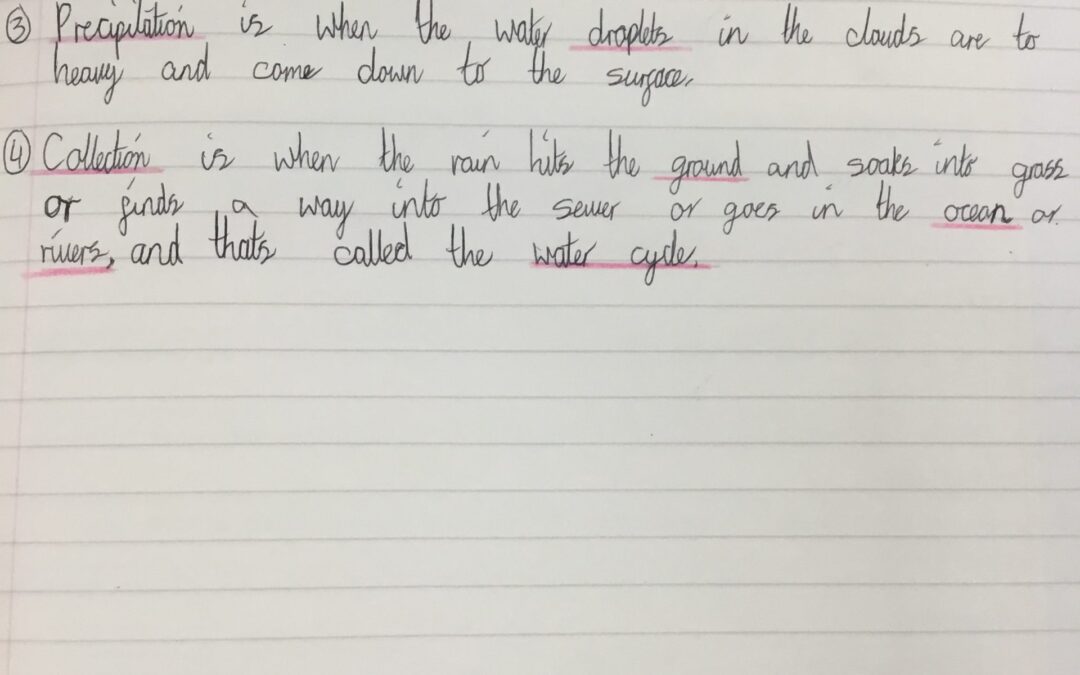 ③ Precipitation is when the water droplets in the clouds are to
heavy and come down to the surface.
④ Collection is when the rain hits the ground and soaks into grass
or finds a way into the sewer or goes in the ocean or
rivers, and thats called the water cycle.